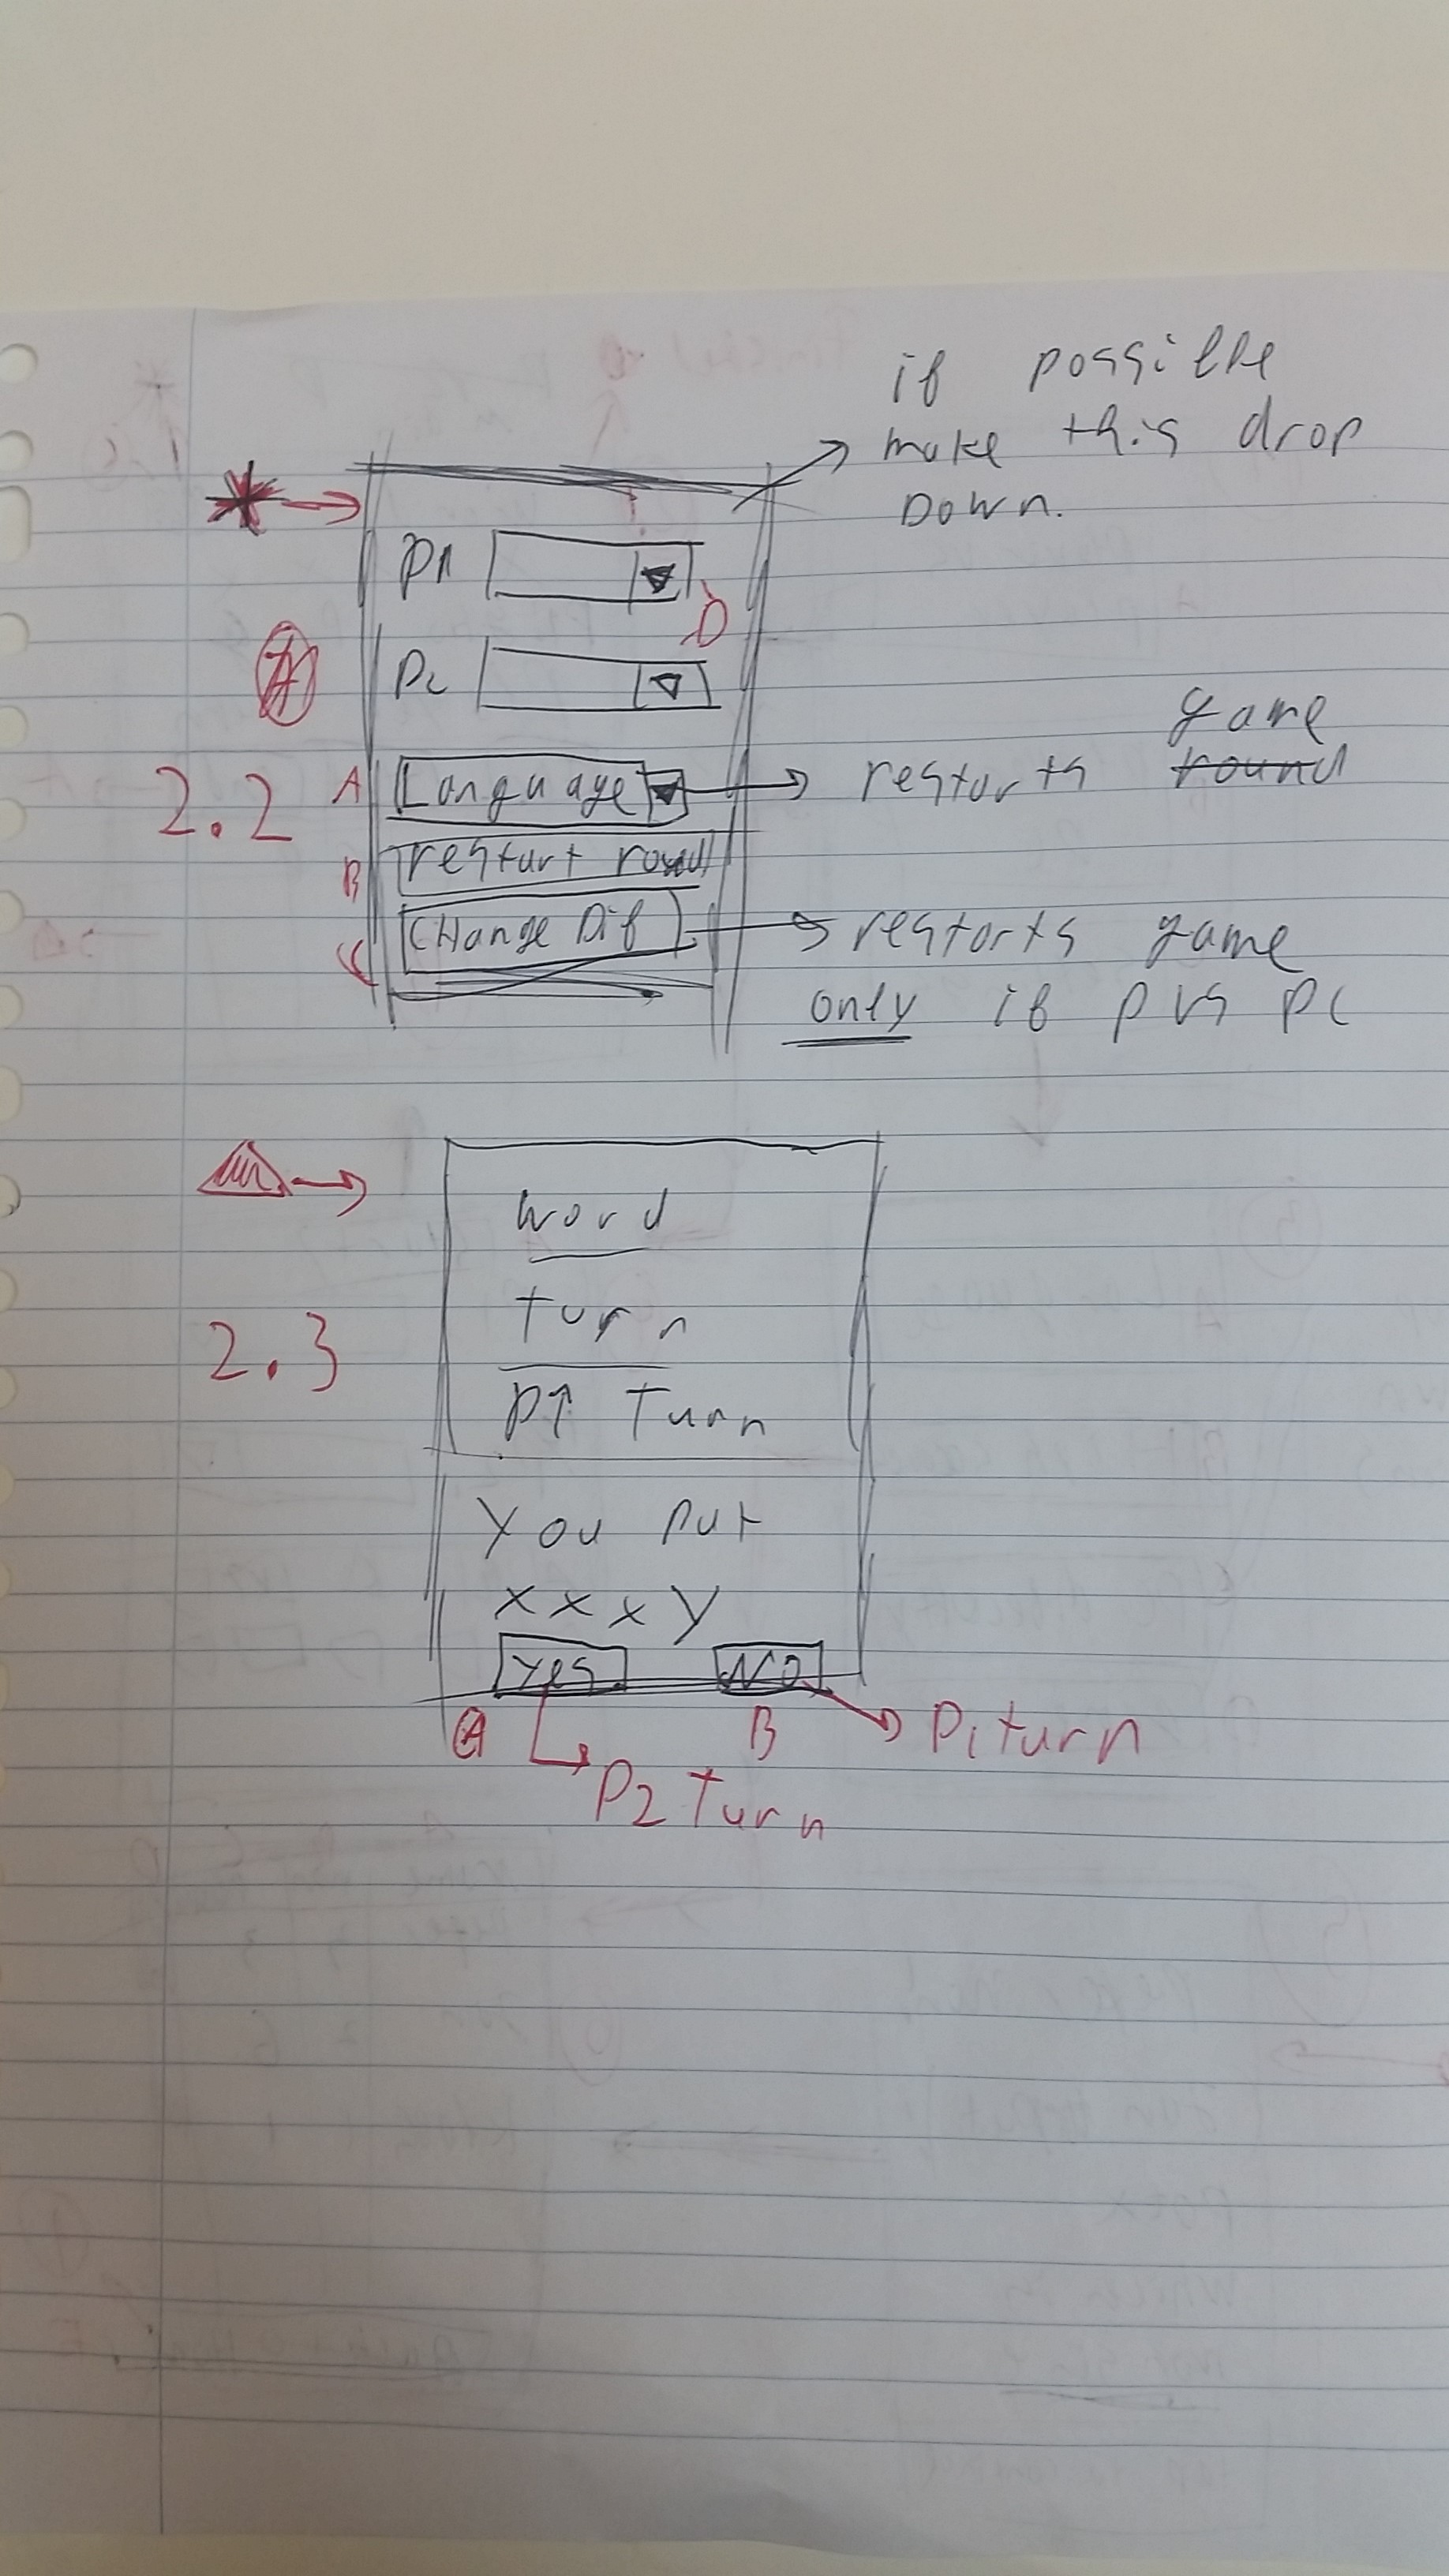 if possible
make this drop
DOWN.
P1
D
P2
2.2
A Language
game
restarts round
B restart round
C CHange Dif
restarts game
only if P VS PC
word
turn
2.3
P1 Turn
You Put
x x x y
Yes
NO
A
B
P1 turn
P2 Turn